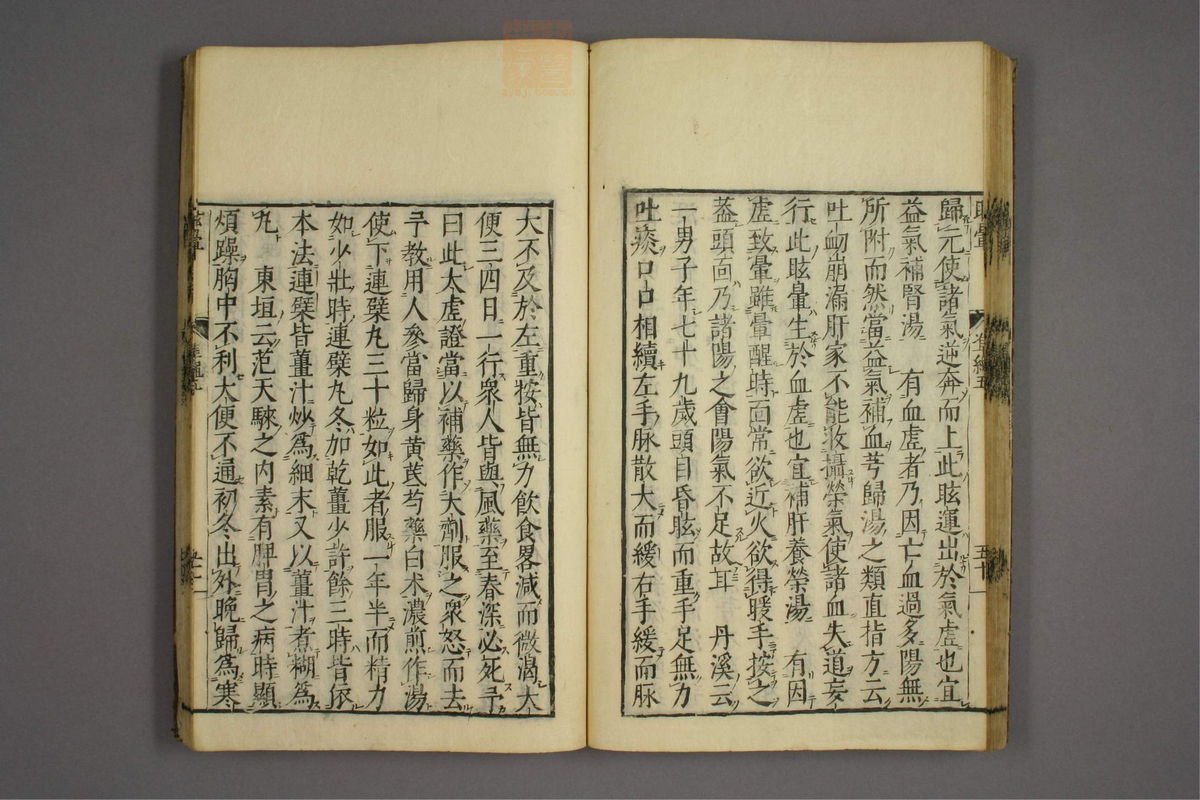 歸元使諸氣逆奔而上此眩運出於氣虛也宜
益氣補腎湯　有血虛者乃因亡血過多陽無
所附而然當益氣補血芎歸湯之類直指方云
吐衂崩漏肝家不能收攝榮氣使諸血失道妄
行此眩暈生於血虛也宜補肝養榮湯　有因
虛致暈雖暈醒時面常欲近火欲得暖手按之
蓋頭面乃諸陽之會陽氣不足故耳　丹溪云
一男子年七十九歲頭目昏眩而重手足無力
吐痰口口相續左手脉散大而緩右手緩而脉
大不及於左重按皆無力飲食畧減而微渴大
便三四日一行衆人皆與風藥至春深必死予
曰此大虛證當以補藥作大劑服之衆怒而去
予教用人參當歸身黃芪芍藥白术濃煎作湯
使下連蘖丸三十粒如此者服一年半而精力
如少壯時連蘖丸冬加乾薑少許餘三時皆依
本法連蘖皆薑汁炒爲細末又以薑汁煮糊爲
丸　東垣云范天騋之内素有脾胃之病時顯
煩躁胸中不利大便不通初冬出外晚歸爲寒
眩暈